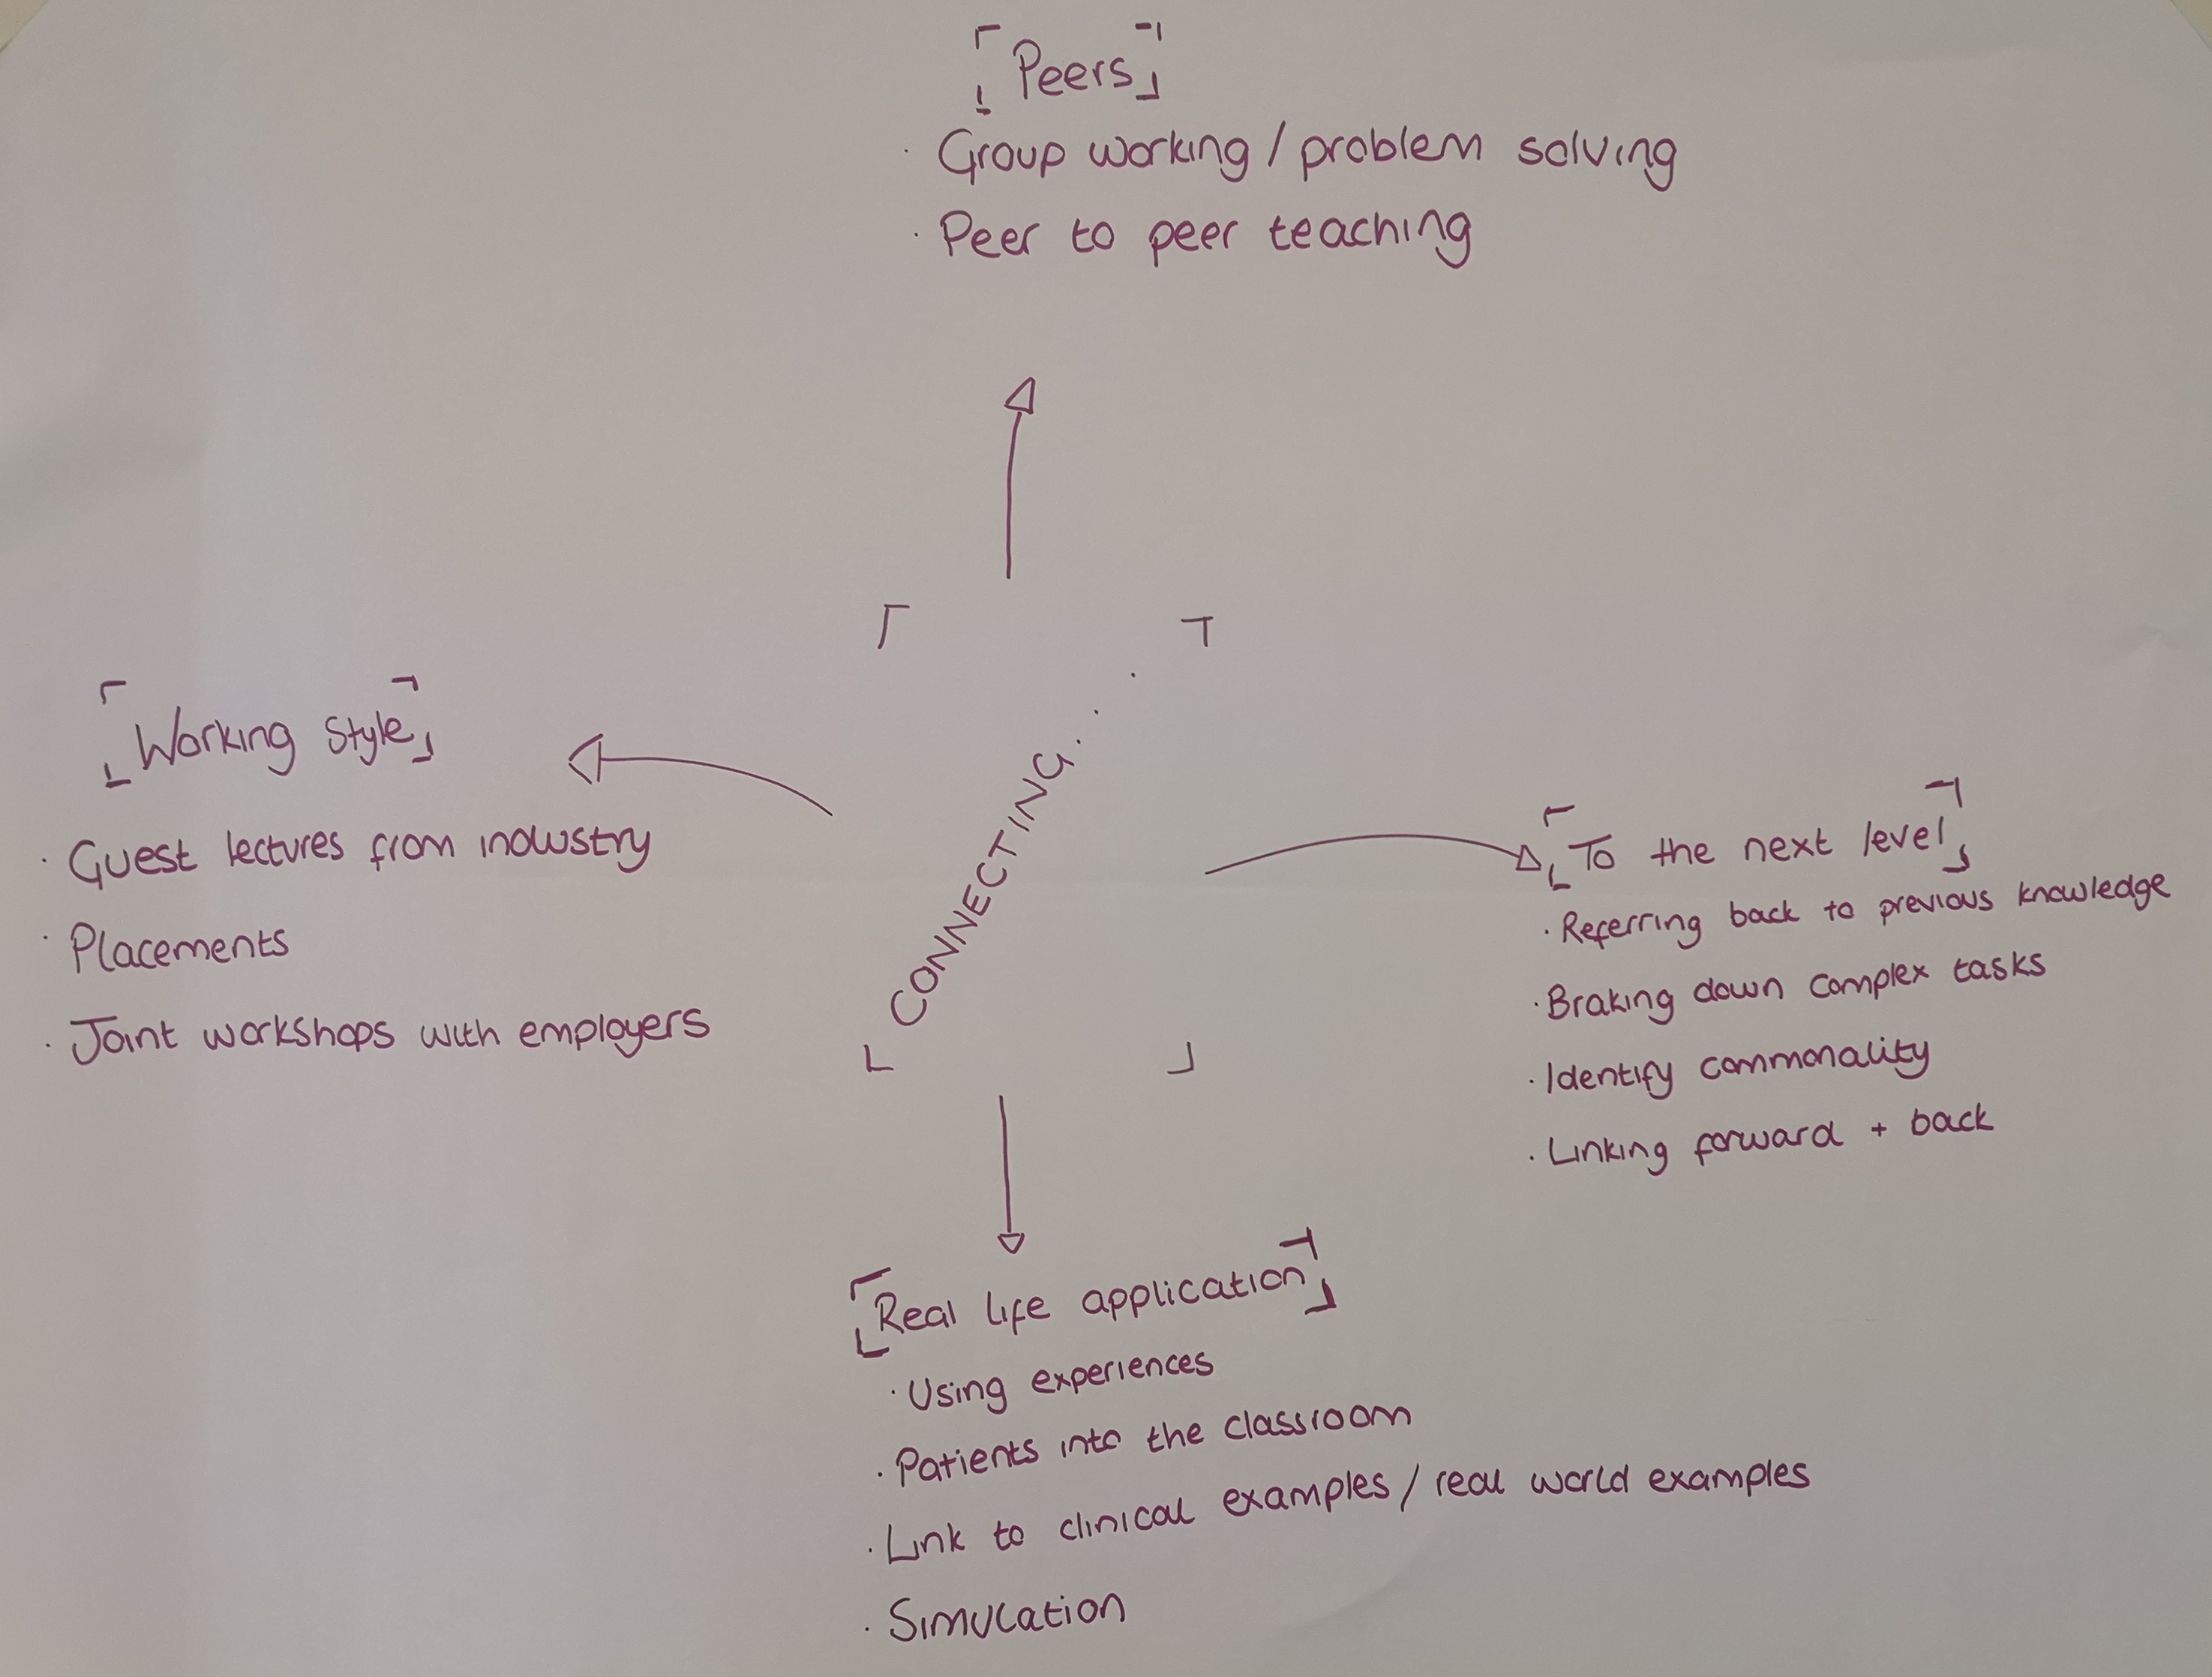 Peers
· Group working / problem solving
· Peer to peer teaching
CONNECTING...
Working Style
· Guest lectures from industry
· Placements
· Joint workshops with employers
To the next level
· Referring back to previous knowledge
· Braking down complex tasks
· Identify commonality
· Linking forward + back
Real life application
· Using experiences
· Patients into the classroom
· Link to clinical examples / real world examples
· Simulation